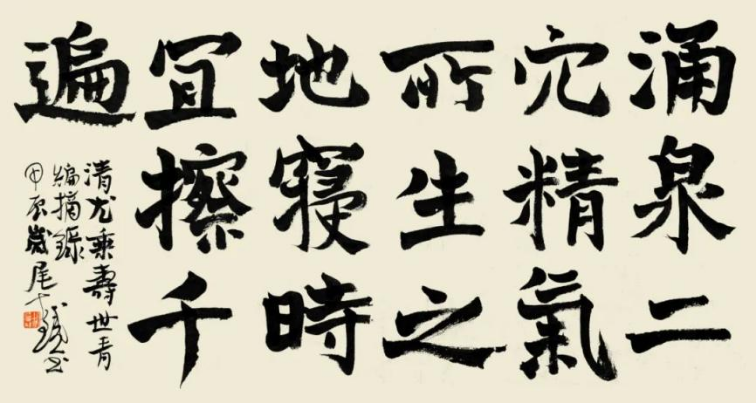 涌泉二
穴精氣
所生之
地寝時
宜擦千
遍
清尤乘壽世青
編摘録
甲辰歲尾